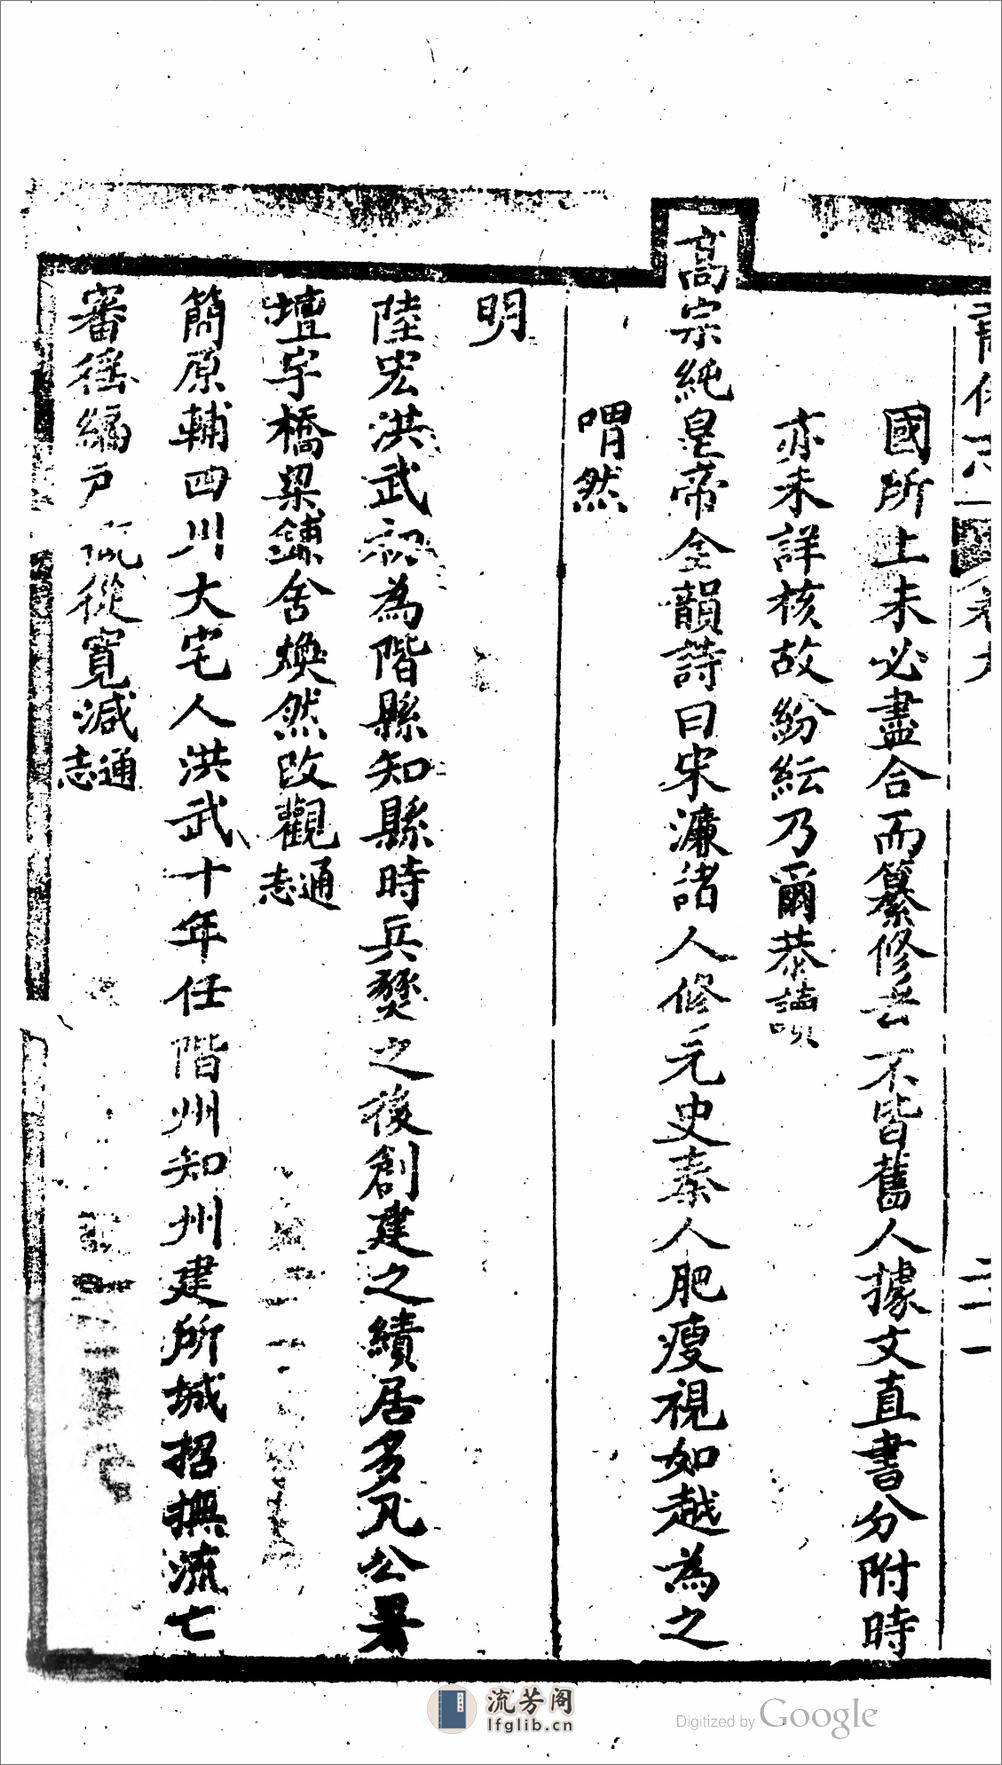 國所上未必盡合而纂修者不皆舊人據文直書分附時
亦未詳核故紛紜乃爾恭讀
高宗純皇帝全韻詩曰宋濂諸人修元史秦人肥瘦視如越為之
喟然
明
陸宏洪武初為階縣知縣時兵燹之後創建之績居多凡公署
壇宇橋梁鋪舍煥然改觀通志
簡原輔四川大宅人洪武十年任階州知州建所城招撫流亡
審徭編戶從寬減通志
二十一
流芳阁
lfglib.cn
Digitized by Google